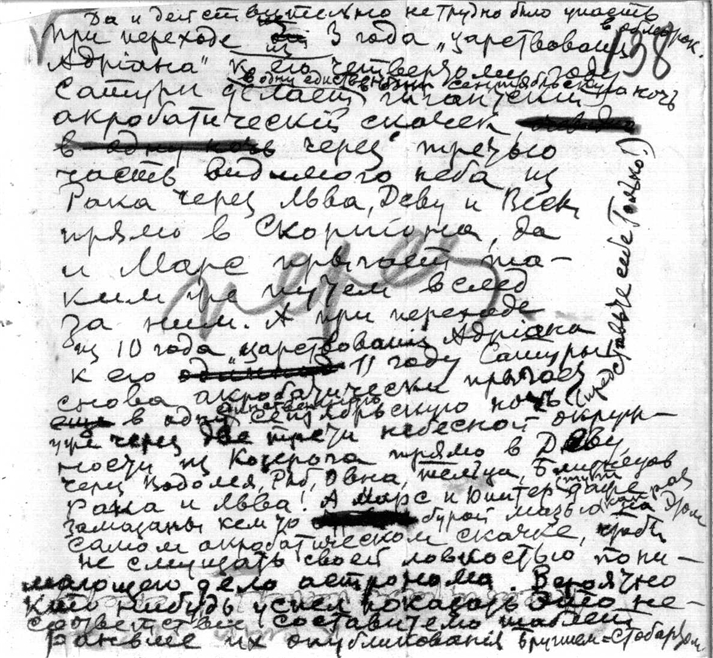 Да и действительно не трудно было упасть
при переходе из 3 года „царствования
138
Адриана" к его четвертому году
в одну единственную сентябрьскую ночь
Сатурн делает гигантский
акробатический скачек
в одну ночь через третью
часть видимого неба из
Рака через Льва, Деву и Весы
прямо в Скорпиона, да
и Марс прыгает та-
ким же путем вслед
за ним. А при переходе
из 10 года „царствования Адриана
к его 11 году Сатурн
снова акробатически прыгает
(представьте себе только!)
единственную
еще в одну сентябрьскую ночь
уже через две трети небесной окруж-
ности из Козерога прямо в Деву
через Водолея, Рыб, Овна, Тельца, Близнецов
Рака и Льва! А Марс и Юпитер даже
замазаны кем то бурой мазью как раз на этом
самом акробатическом скачке, чтоб
не смущать своей ловкостью пони-
мающего дело астронома. Вероятно
кто нибудь успел показать это не-
соответствие составителю таблет
раньше их опубликования Бругшем = Стобартом